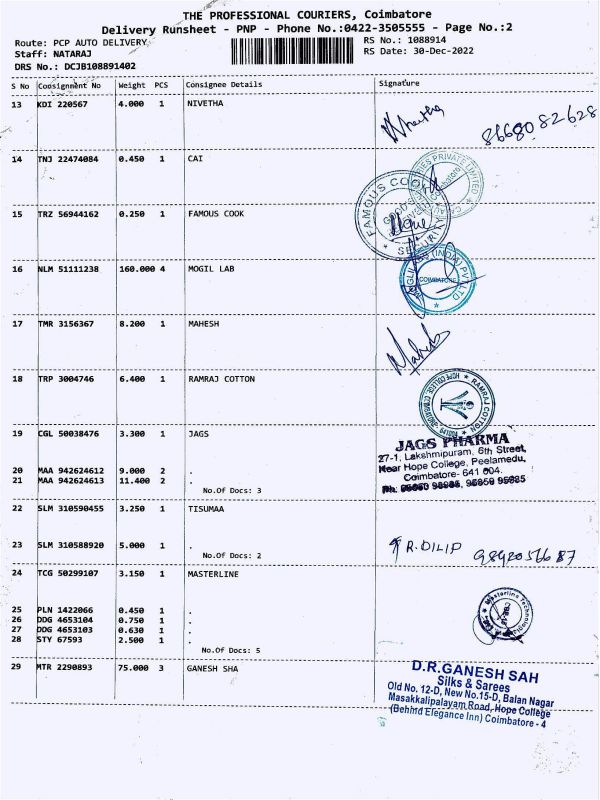 THE PROFESSIONAL COURIERS, Coimbatore
Delivery Runsheet - PNP - Phone No.:0422-3505555 - Page No.:2
Route: PCP AUTO DELIVERY
Staff: NATARAJ
DRS No.: DCJB108891402
RS No.: 1088914
RS Date: 30-Dec-2022
S No Consignment No Weight PCS Consignee Details Signature
13 KDI 220567 4.000 1 NIVETHA
Nivetha 8668082628
14 TNJ 22474084 0.450 1 CAI
15 TRZ 56944162 0.250 1 FAMOUS COOK
FAMOUS COOK
SECURITY
16 NLM 51111238 160.000 4 MOGIL LAB
COIMBATORE
17 TMR 3156367 8.200 1 MAHESH
Mahesh
18 TRP 3004746 6.400 1 RAMRAJ COTTON
RAMRAJ COTTON
HOPE COLLEGE, COIMBATORE - 641004
19 CGL 50038476 3.300 1 JAGS
JAGS PHARMA
27-1, Lakshmipuram, 6th Street,
Near Hope College, Peelamedu,
Coimbatore- 641 004.
20 MAA 942624612 9.000 2 .
21 MAA 942624613 11.400 2 .
No.Of Docs: 3
22 SLM 310590455 3.250 1 TISUMAA
23 SLM 310588920 5.000 1 .
No.Of Docs: 2
R. DILIP
24 TCG 50299107 3.150 1 MASTERLINE
Masterline Technologies
25 PLN 1422066 0.450 1 .
26 DDG 4653104 0.750 1 .
27 DDG 4653103 0.630 1 .
28 STY 67593 2.500 1 .
No.Of Docs: 5
29 MTR 2290893 75.000 3 GANESH SHA
D.R.GANESH SAH
Silks & Sarees
Old No. 12-D, New No.15-D, Balan Nagar
Masakkalipalayam Road, Hope College
(Behind Elegance Inn) Coimbatore - 4